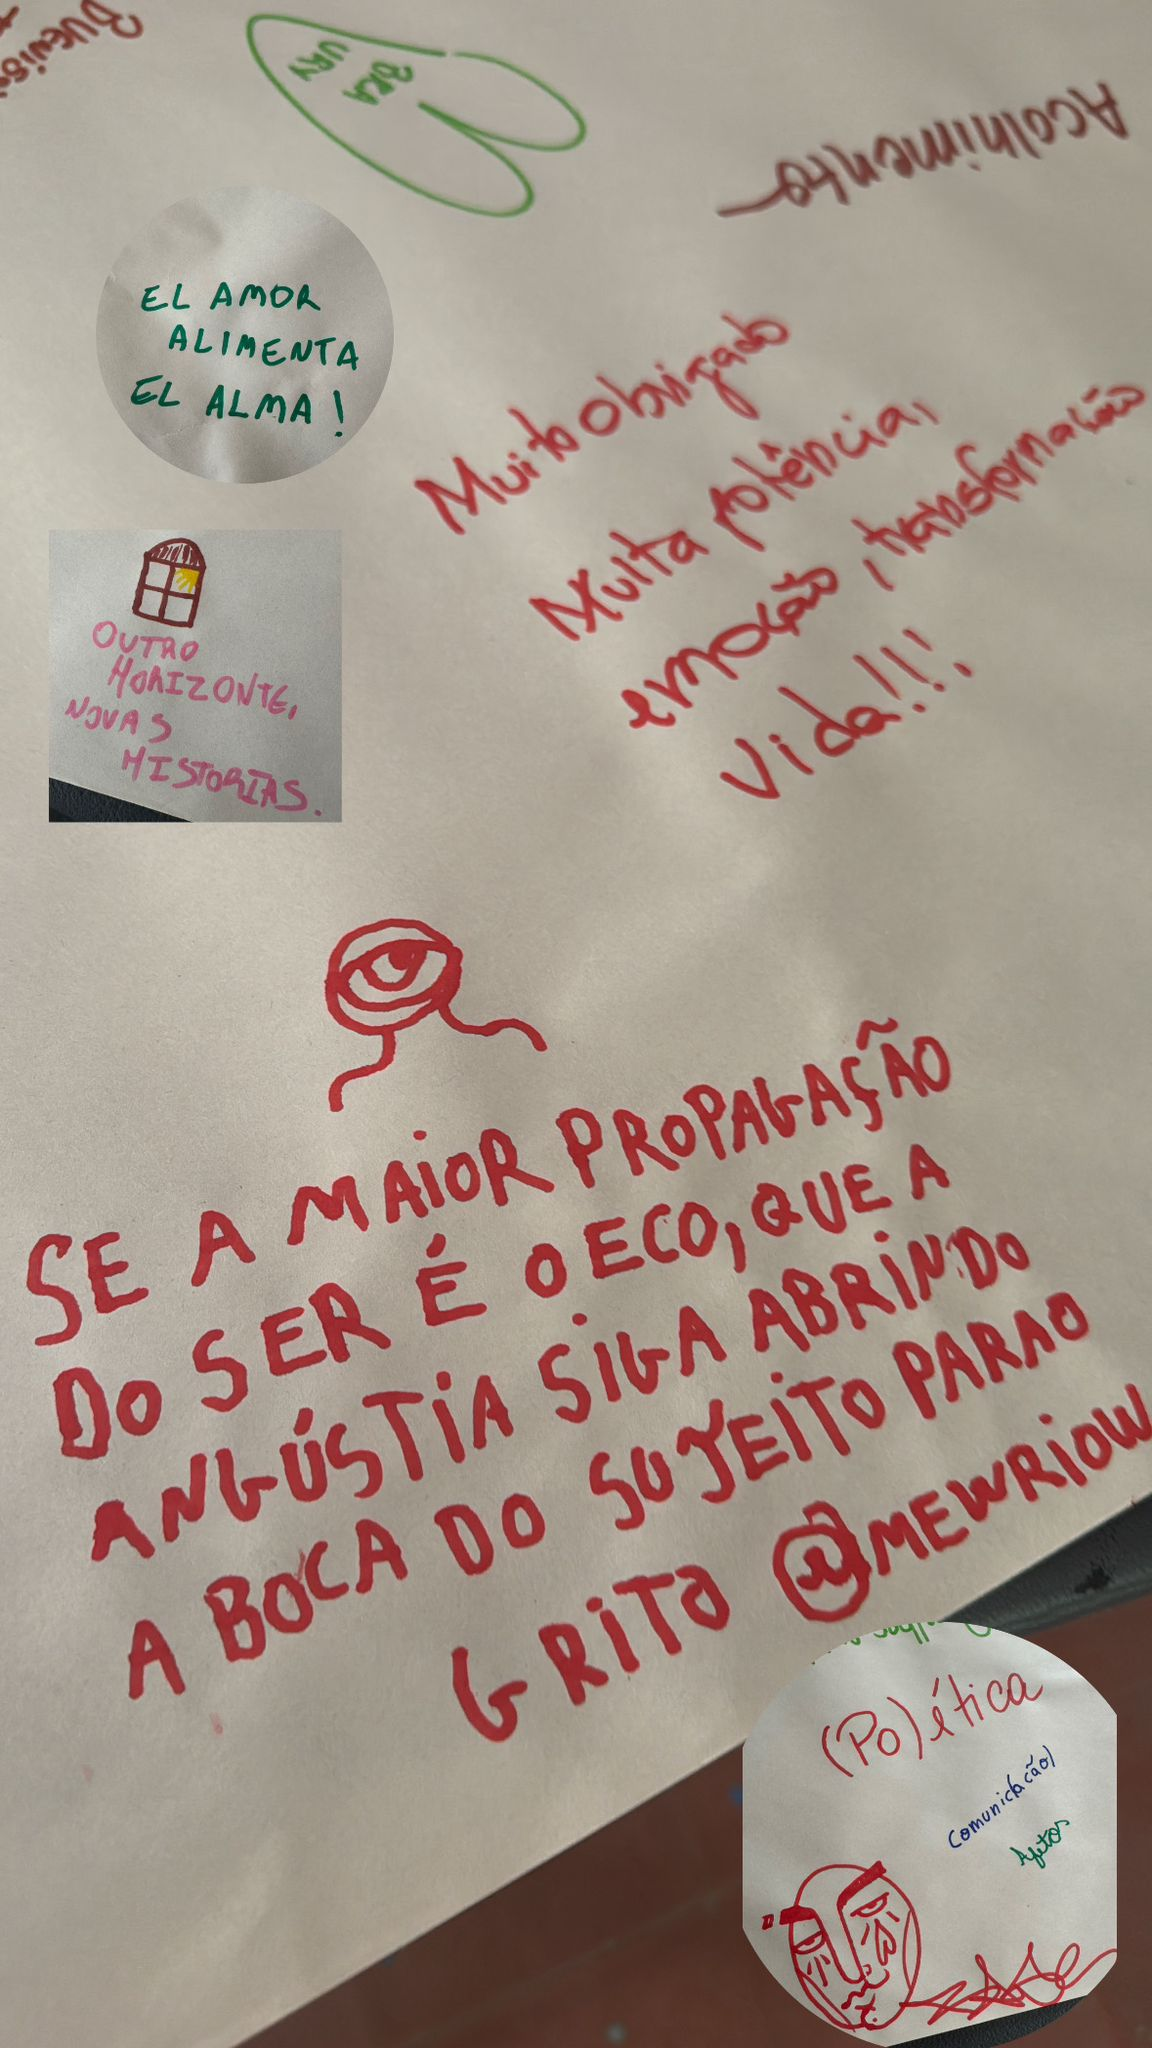 Acolhimento
EL AMOR
ALIMENTA
EL ALMA!
Muito obrigado
Muita potência,
emoção, transformação
Vida!!!
OUTRO
HORIZONTE,
NOVAS
HISTORIAS.
SE A MAIOR PROPAGAÇÃO
DO SER É O ECO, QUE A
ANGÚSTIA SIGA ABRINDO
A BOCA DO SUJEITO PARA O
GRITO @MEWRIOW
(Po)ética
comunic(ação)
Afetos